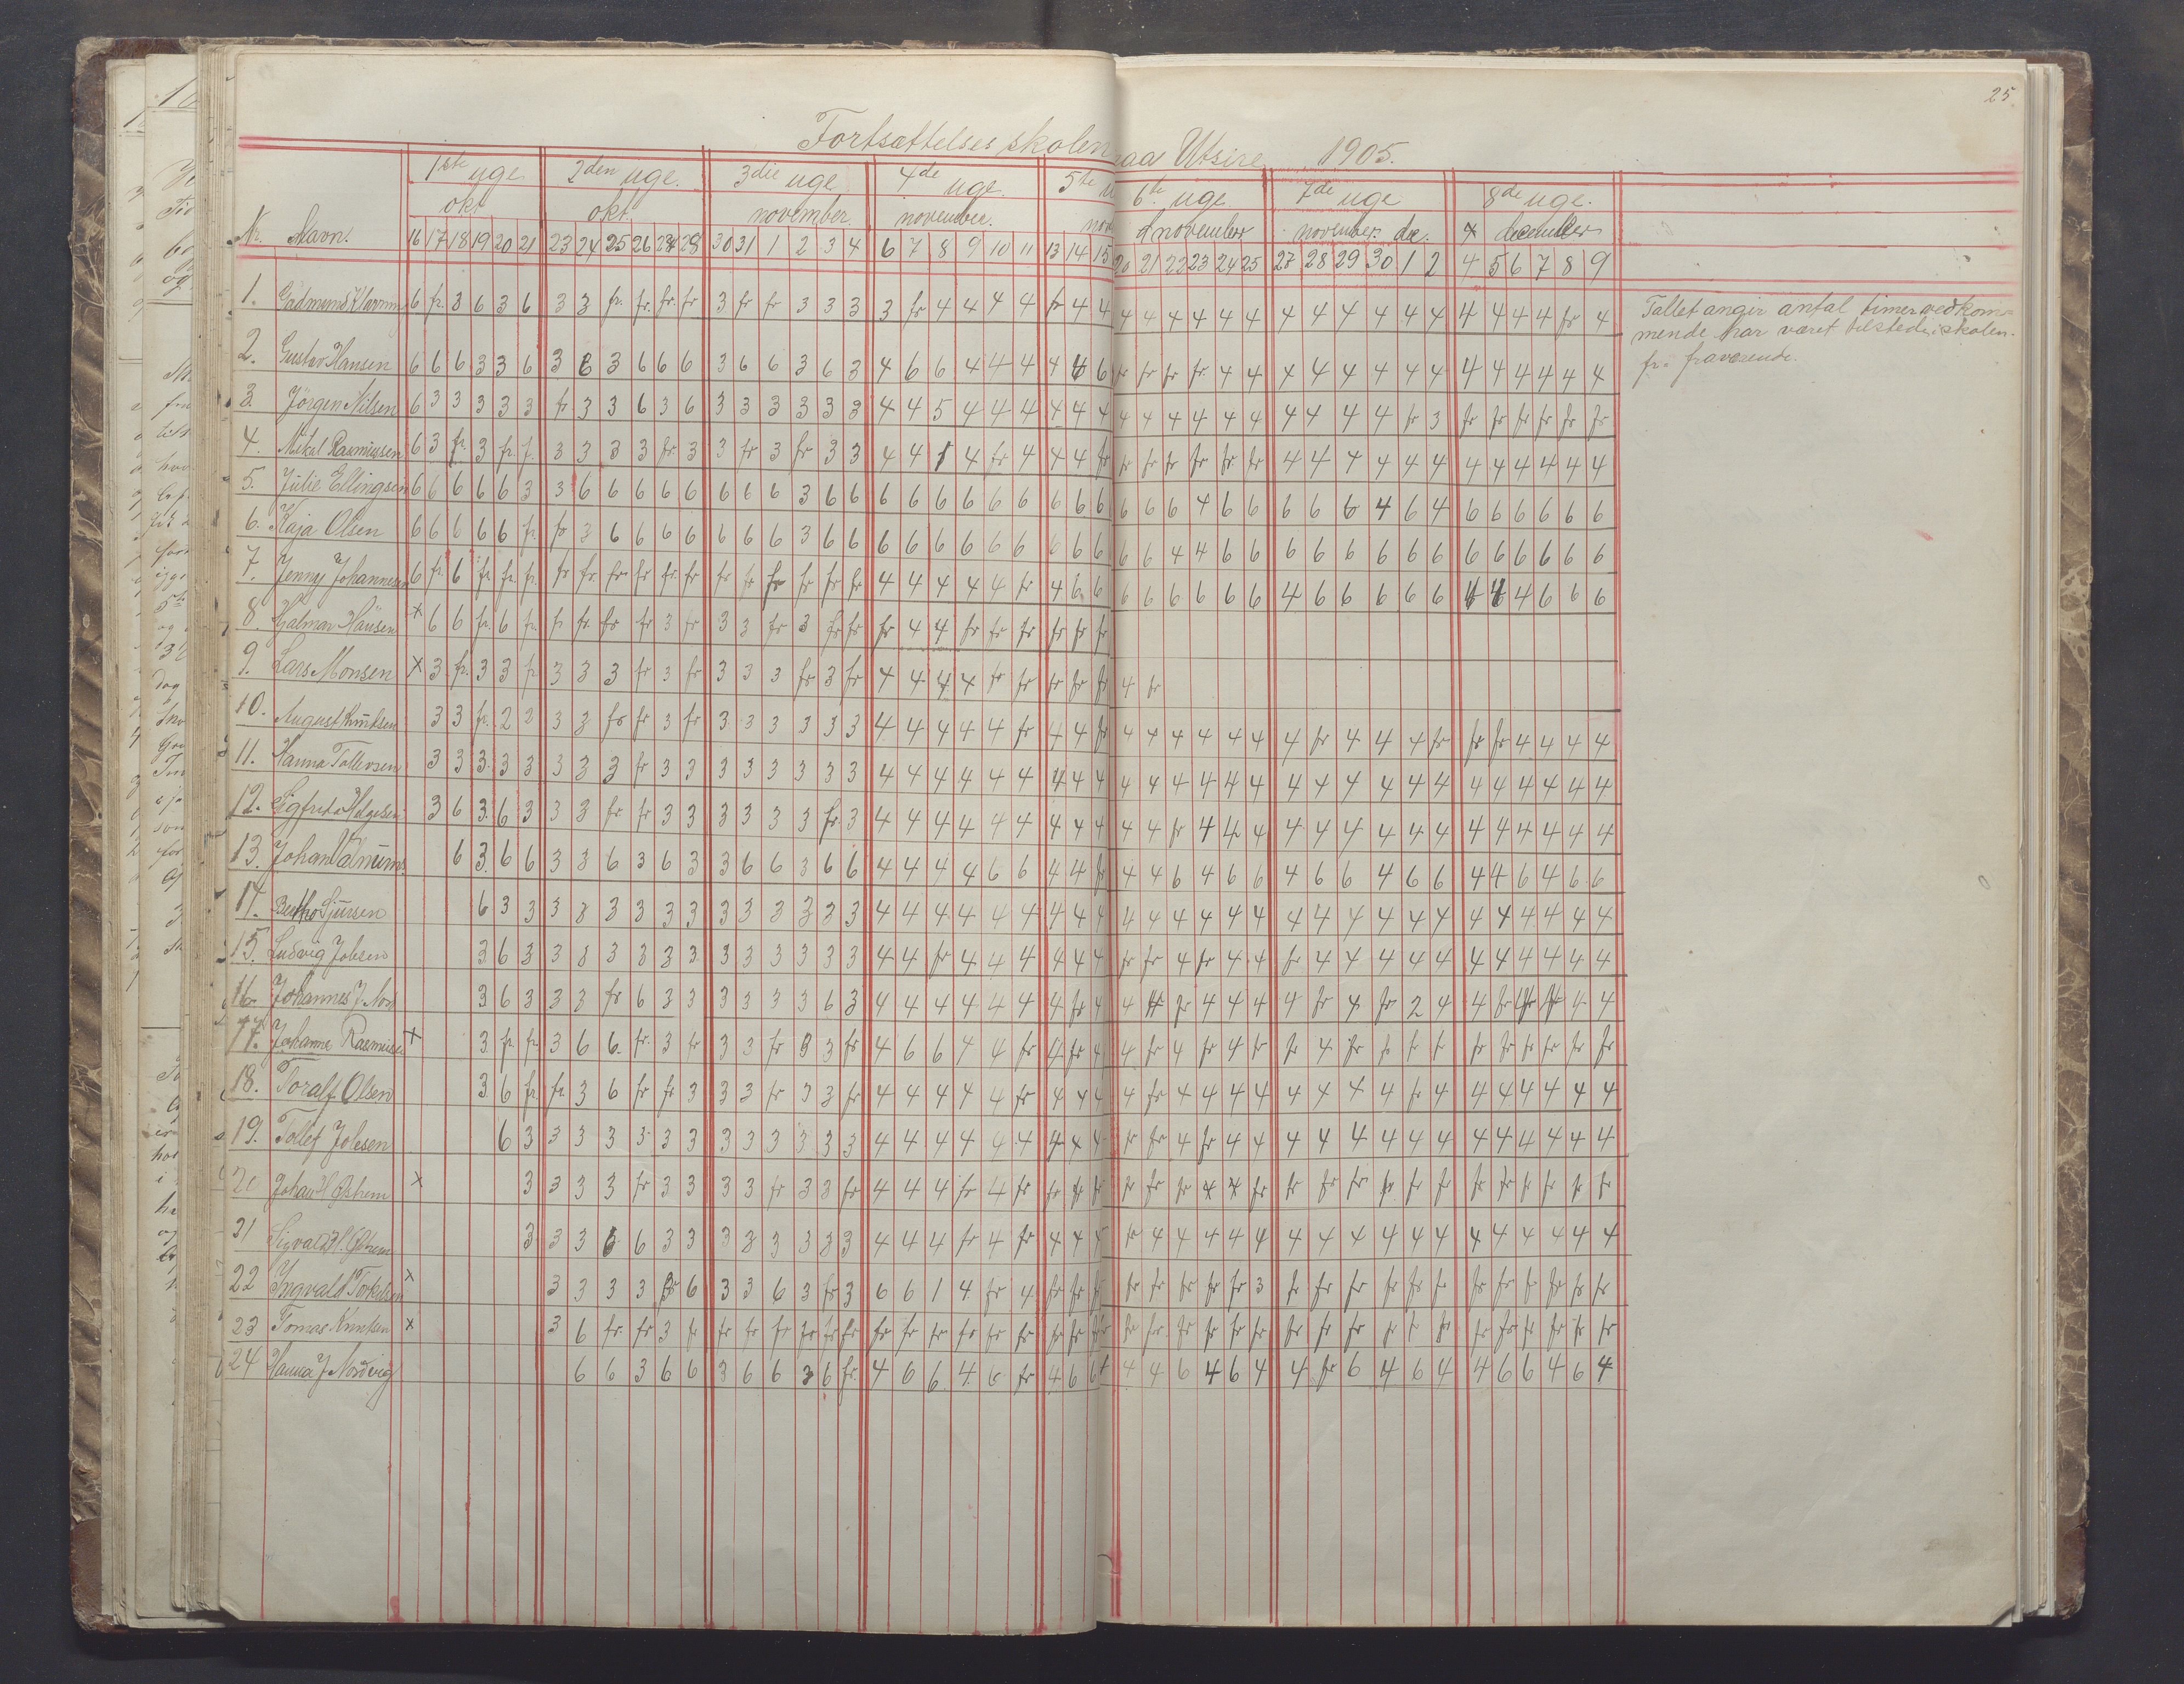 25
Fortsættelsesskolen paa Utsire 1905.
1ste uge 2den uge. 3die uge 4de uge. 5te u 6te uge 7de uge 8de uge.
okt okt. november. november. nov november november dec. december
Nr. Navn. 16 17 18 19 20 21 23 24 25 26 27 28 30 31 1 2 3 4 6 7 8 9 10 11 13 14 15 20 21 22 23 24 25 27 28 29 30 1 2 4 5 6 7 8 9
1. 6 fr. 3 6 3 6 3 3 fr. fr. fr. fr 3 fr fr 3 3 3 3 fr 4 4 4 4 fr 4 4 4 4 4 4 4 4 4 4 4 4 4 4 4 4 4 4 fr 4
Tallet angir antal timer vedkom-
mende har været tilstede i skolen.
fr. fraværende.
2. Gustav Hansen 6 6 6 3 3 6 3 6 3 6 6 6 3 6 6 3 6 3 4 6 6 4 4 4 4 4 6 fr fr fr fr 4 4 4 4 4 4 4 4 4 4 4 4 4 4
3. Jörgen Nilsen 6 3 3 3 3 3 fr 3 3 6 3 6 3 3 3 3 3 3 4 4 5 4 4 4 4 4 4 4 4 4 4 4 4 4 4 4 4 fr 3 fr fr fr fr fr fr
4. Mikal Rasmussen 6 3 fr. 3 fr. fr. 3 3 3 3 fr. 3 3 fr 3 fr 3 3 4 4 1 4 fr 4 4 4 fr fr fr fr fr fr fr 4 4 4 4 4 4 4 4 4 4 4 4
5. Julie Ellingsen 6 6 6 6 6 3 3 6 6 6 6 6 6 6 6 3 6 6 6 6 6 6 6 6 6 6 6 6 6 6 4 6 6 6 6 6 4 6 4 6 6 6 6 6 6
6. Kaja Olsen 6 6 6 6 6 fr. fr 3 6 6 6 6 6 6 6 3 6 6 6 6 6 6 6 6 6 6 6 6 6 4 4 6 6 6 6 6 6 6 6 6 6 6 6 6 6
7. Jenny Johannesen 6 fr. 6 fr. fr. fr. fr fr. fr fr fr. fr fr fr fr fr fr fr 4 4 4 4 4 fr 4 6 6 6 6 6 6 6 6 4 6 6 6 6 6 4 4 4 6 6 6
8. Hjalmar Hansen x 6 6 fr. 6 fr. fr fr. fr fr 3 fr 3 3 fr 3 fr fr fr 4 4 fr fr fr fr fr fr
9. Lars Monsen x 3 fr. 3 3 fr. 3 3 3 fr 3 fr 3 3 3 fr 3 fr 4 4 4 4 fr fr fr fr fr 4 fr
10. August Knutsen 3 3 fr. 2 2 3 3 fr fr 3 fr 3 3 3 3 3 3 4 4 4 4 4 fr 4 4 fr 4 4 4 4 4 4 4 fr 4 4 4 fr fr fr 4 4 4 4
11. Hanna Tollevsen 3 3 3 3 3 3 3 3 fr 3 3 3 3 3 3 3 3 4 4 4 4 4 4 4 4 4 4 4 4 4 4 4 4 4 4 4 4 4 4 4 4 4 4 4
12. 3 6 3 6 3 3 3 fr fr 3 3 3 3 3 3 fr 3 4 4 4 4 4 4 4 4 4 4 4 fr 4 4 4 4 4 4 4 4 4 4 4 4 4 4 4
13. 6 3 6 6 3 3 6 3 6 3 3 6 6 3 6 6 4 4 4 4 6 6 4 4 fr 4 4 6 4 6 6 4 6 6 4 6 6 4 4 6 4 6 6
14. Sjursen 6 3 3 3 3 3 3 3 3 3 3 3 3 3 3 4 4 4 4 4 4 4 4 4 4 4 4 4 4 4 4 4 4 4 4 4 4 4 4 4 4 4
15. Ludvig Jobsen 3 6 3 3 3 3 3 3 3 3 3 3 3 3 3 4 4 fr 4 4 4 4 4 4 fr fr 4 fr 4 4 fr 4 4 4 4 4 4 4 4 4 4 4
16. Johannes J. 3 6 3 3 3 fr 6 3 3 3 3 3 3 6 3 4 4 4 4 4 4 4 fr 4 4 4 fr 4 4 4 4 fr 4 fr 2 4 4 fr fr fr 4 4
17. Johanne Rasmussen x 3 fr. fr. 3 6 6. fr. 3 fr 3 3 fr 3 3 fr 4 6 6 4 4 fr 4 fr 4 4 fr 4 fr 4 fr fr 4 fr fr fr fr fr fr fr fr fr fr
18. Toralf Olsen 3 6 fr. fr. 3 6 fr fr 3 3 3 fr 3 3 fr 4 4 4 4 4 fr 4 4 4 4 fr 4 4 4 4 4 4 4 4 fr 4 4 4 4 4 4 4
19. Tollef Jobsen 6 3 3 3 3 3 3 3 3 3 3 3 3 3 4 4 4 4 4 4 4 4 4 fr fr 4 fr 4 4 4 4 4 4 4 4 4 4 4 4 4 4
20 Johan H Østrem x 3 3 3 3 fr 3 3 3 3 fr 3 3 fr 4 4 4 fr 4 fr fr fr fr fr fr fr 4 4 fr fr fr fr fr fr fr fr fr fr fr fr fr
21 Sigvald H. Østrem 3 3 3 6 6 3 3 3 3 3 3 3 3 4 4 4 fr 4 fr 4 4 4 fr 4 4 4 4 4 4 4 4 4 4 4 4 4 4 4 4 4
22 Ingvald Torkelsen x 3 3 3 3 fr 6 3 3 6 3 fr 3 6 6 1 4 fr 4 fr fr fr fr fr fr fr fr 3 fr fr fr fr fr fr fr fr fr fr fr fr
23 Tomas Knutsen x 3 6 fr. fr 3 fr fr fr fr fr fr fr fr fr fr fr fr fr fr fr fr fr fr fr fr fr fr fr fr fr fr fr fr fr fr fr fr fr fr
24 Hanna J Nordvig 6 6 3 6 6 3 6 6 3 6 fr. 4 6 6 4 6 fr 4 6 6 4 4 6 4 6 4 4 fr 6 4 6 4 4 6 6 4 6 4